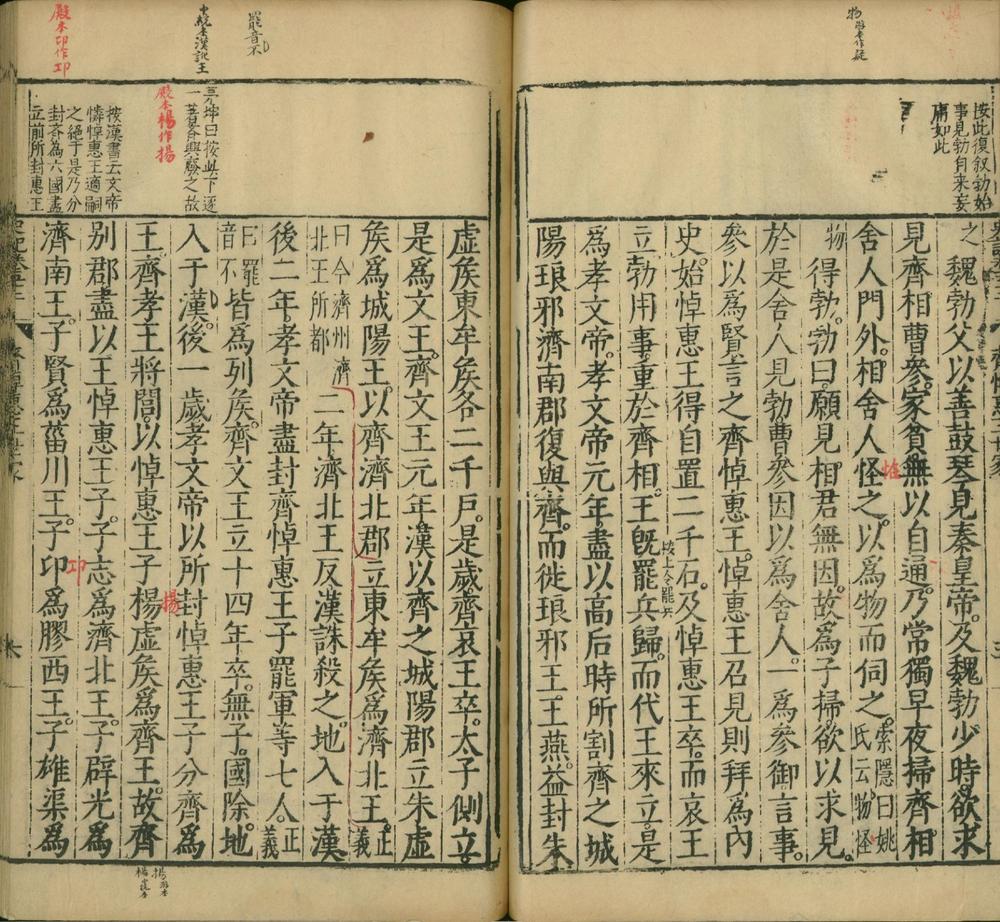 物游本作疑
按此復叙勃始
事見勃自来妄
庸如此
之魏勃父以善鼓琴見秦皇帝。及魏勃少時。欲求
見齊相曹參。家貧無以自通。乃常獨早夜掃齊相
舍人門外。相舍人怪之。以爲物而伺之。索隱曰姚氏云物怪
物得勃。勃曰。願見相君無因。故爲子掃。欲以求見。
於是舍人見勃曹參。因以爲舍人。一爲參御言事。
參以爲賢。言之齊悼惠王。悼惠王召見則拜爲內
史。始悼惠王得自置二千石。及悼惠王卒。而哀王
立。勃用事。重於齊相。王既罷兵歸。而代王來立。是
爲孝文帝。孝文帝元年。盡以高后時所割齊之城
陽琅邪濟南郡復與齊。而徙琅邪王。王燕。益封朱
罷音不
史統本漢訛王
殿本卬作卬
吴坤曰按此下逐
一菩畧興廢之故
殿本楊作揚
按漢書云文帝
憐悼惠王適嗣
之絕于是乃分
封齊為六國盡
立前所封惠王
虛矦東牟矦各二千戶。是歲齊哀王卒。太子側立。
是爲文王。齊文王元年。漢以齊之城陽郡立朱虛
矦爲城陽王。以齊濟北郡立東牟矦爲濟北王。正義
曰今濟州濟北王所都二年。濟北王反。漢誅殺之。地入于漢
後二年。孝文帝盡封齊悼惠王子罷軍等七人。正義
曰罷音不皆爲列矦。齊文王立十四年卒。無子。國除。地
入于漢。後一歲孝文帝以所封悼惠王子分齊爲
王。齊孝王將閭。以悼惠王子楊虛矦爲齊王。故齊
揚
別郡盡以王悼惠王子。子志爲濟北王。子辟光爲
濟南王。子賢爲菑川王。子卬爲膠西王。子雄渠爲